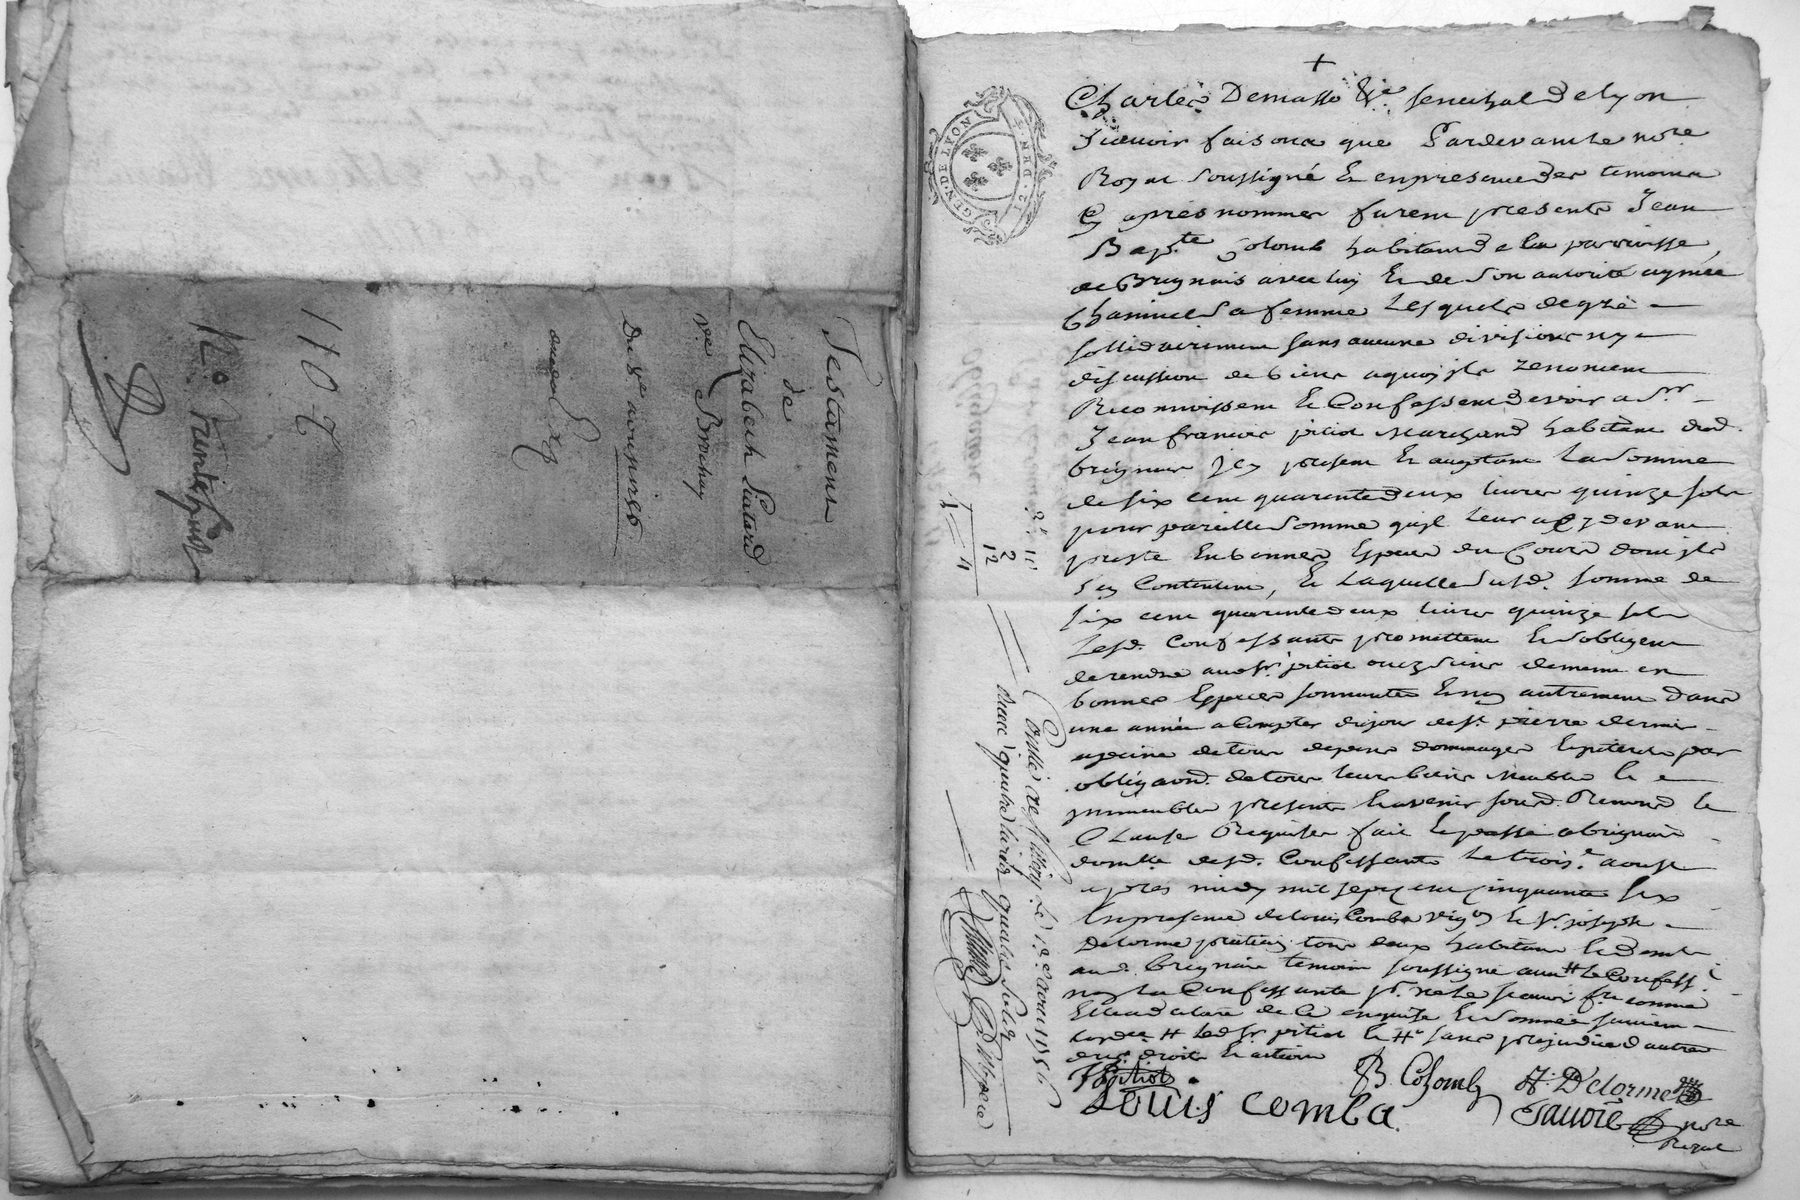 Testament
de
Elizabeth
ve Brochay
Du 5e
110 2
No trente huit
+
GEN · DE LYON
2 S · DEN · 4
Charles Demasso Sénéchal de Lyon
Scavoir faisons que Pardevant le nore
Royal soussigné et en presence des temoins
cy apres nommes furent presents Jean
Bapte Colomb habitant de la parroisse
de Brignais avec luy et de son autorité aymée
Chaminel sa femme lesquels de gré
sollidairement sans aucune division ny
discussion de biens a quoy ils renoncent
Reconnoissent et Confessent devoir a Sr
Jean francois pitiot Marchand habitant dud.
brignais icy present et aceptant La Somme
de six cent quarante deux livres quinze sols
pour pareille Somme qu'il leur a cy devant
presté En bonnes Especes du Cours dont ils
Se Contentent, Et Laquelle susd. somme de
six cent quarante deux livres quinze sols
Lesd. Confessants promettent Et s'obligent
de rendre aud. Sr pitiot ou ez siens de meme en
bonnes Especes sonnantes Et non autrement Dans
une année a Compter du jour de St pierre dernier
a peine de tous depens dommages Interets par
obligaon. de tous leurs biens Meubles et
immeubles presents et avenir sousd. Renond. et
Clauses Requises fait et passé a brignais
domlle desd. Confessants Le trois.e aoust
apres midy mil sept cent cinquante six
En presence de Louis Comba vigon et Sr joseph
Delorme praticien tous deux habitants et Demts
aud. brignais temoins soussignés avec le Confesst
non la Confessante pr ne le scavoir fe comme
Elle a declaré de ce enquise Et Sommée suivant
lordce led. Sr pitiot et sans prejudice d'autres
dus droits et actions
Pitiot
B Colomb
Delorme
Louis comba
Savoie nore
Royal
2
12
4
Conllé a Millery Le 12 aout 1756
Receu quatre livres quatre sols